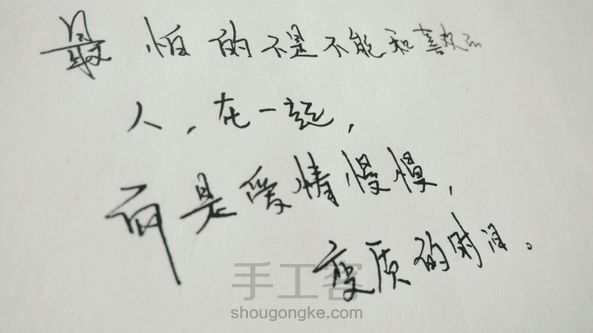 最怕的不是不能和喜欢的
人,在一起,
而是爱情慢慢,
变质的时候。
手工客
shougongke.com